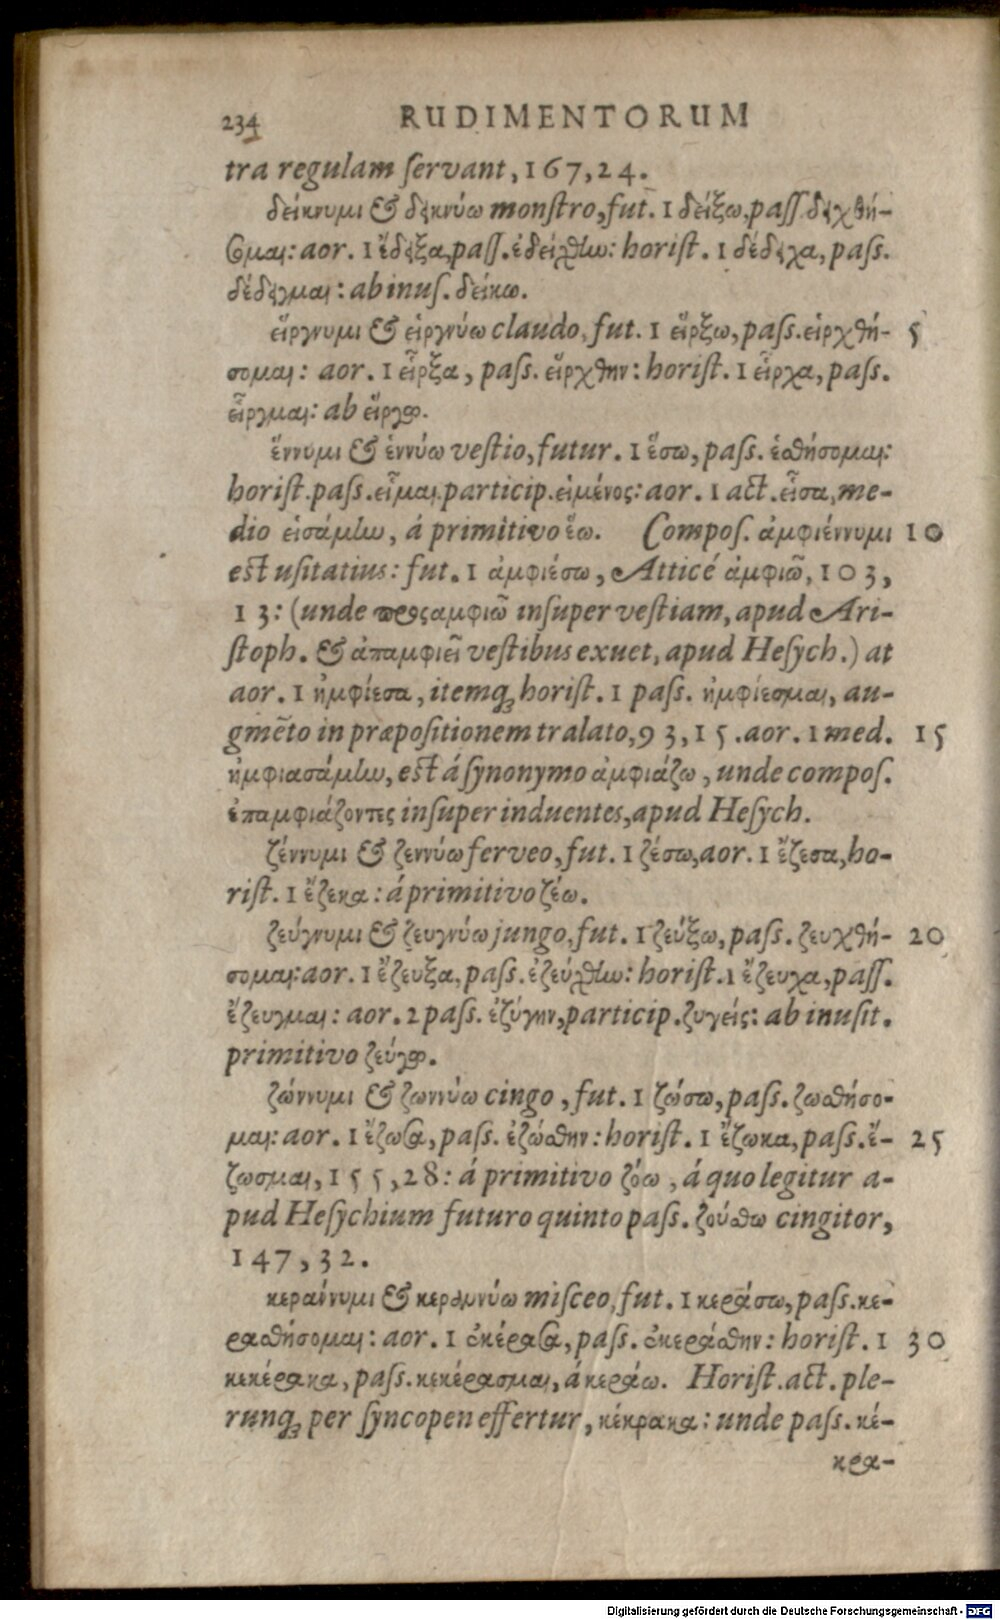 234 RUDIMENTORUM
tra regulam ſervant, 167, 24.
δείκνυμι & δεικνύω monſtro, fut. 1 δείξω, paſſ. δειχθή-
σομαι: aor. 1 ἔδειξα, paſſ. ἐδείχθην: horiſt. 1 δέδειχα, paſſ.
δέδειγμαι: ab inuſ. δείκω.
εἴργνυμι & εἰργνύω claudo, fut. 1 εἴρξω, paſſ. εἰρχθή- 5
σομαι: aor. 1 εἶρξα, paſſ. εἴρχθην: horiſt. 1 εἶρχα, paſſ.
εἶργμαι: ab εἴργω.
ἕννυμι & ἑννύω veſtio, futur. 1 ἕσω, paſſ. ἑσθήσομαι:
horiſt. paſſ. εἷμαι, particip. εἱμένος: aor. 1 act. εἷσα, me-
dio εἱσάμην, á primitivo ἕω. Compoſ. ἀμφιέννυμι 10
est uſitatius: fut. 1 ἀμφιέσω, Atticé ἀμφιῶ, 103,
13: (unde προςαμφιῶ inſuper veſtiam, apud Ari-
ſtoph. & ἀπαμφιεῖ veſtibus exuet, apud Heſych.) at
aor. 1 ἠμφίεσα, itemq; horiſt. 1 paſſ. ἠμφίεσμαι, au-
gmēto in præpoſitionem tralato, 93, 15. aor. 1 med. 15
ἠμφιασάμην, est á ſynonymo ἀμφιάζω, unde compoſ.
ἐπαμφιάζοντες inſuper induentes, apud Heſych.
ζέννυμι & ζεννύω ferveo, fut. 1 ζέσω, aor. 1 ἔζεσα, ho-
riſt. 1 ἔζεκα: á primitivo ζέω.
ζεύγνυμι & ζευγνύω jungo, fut. 1 ζεύξω, paſſ. ζευχθή- 20
σομαι: aor. 1 ἔζευξα, paſſ. ἐζεύχθην: horiſt. 1 ἔζευχα, paſſ.
ἔζευγμαι: aor. 2 paſſ. ἐζύγην, particip. ζυγείς: ab inuſit.
primitivo ζεύγω.
ζώννυμι & ζωννύω cingo, fut. 1 ζώσω, paſſ. ζωσθήσο-
μαι: aor. 1 ἔζωσα, paſſ. ἐζώσθην: horiſt. 1 ἔζωκα, paſſ. ἔ- 25
ζωσμαι, 155, 28: á primitivo ζόω, á quo legitur a-
pud Heſychium futuro quinto paſſ. ζούσθω cingitor,
147, 32.
κεραίννυμι & κεραννύω miſceo, fut. 1 κεράσω, paſſ. κε-
ρασθήσομαι: aor. 1 ἐκέρασα, paſſ. ἐκεράσθην: horiſt. 1 30
κεκέρακα, paſſ. κεκέρασμαι, á κεράω. Horiſt. act. ple-
runq; per ſyncopen effertur, κέκρακα: unde paſſ. κέ-
κρα-
Digitalisierung gefördert durch die Deutsche Forschungsgemeinschaft - DFG